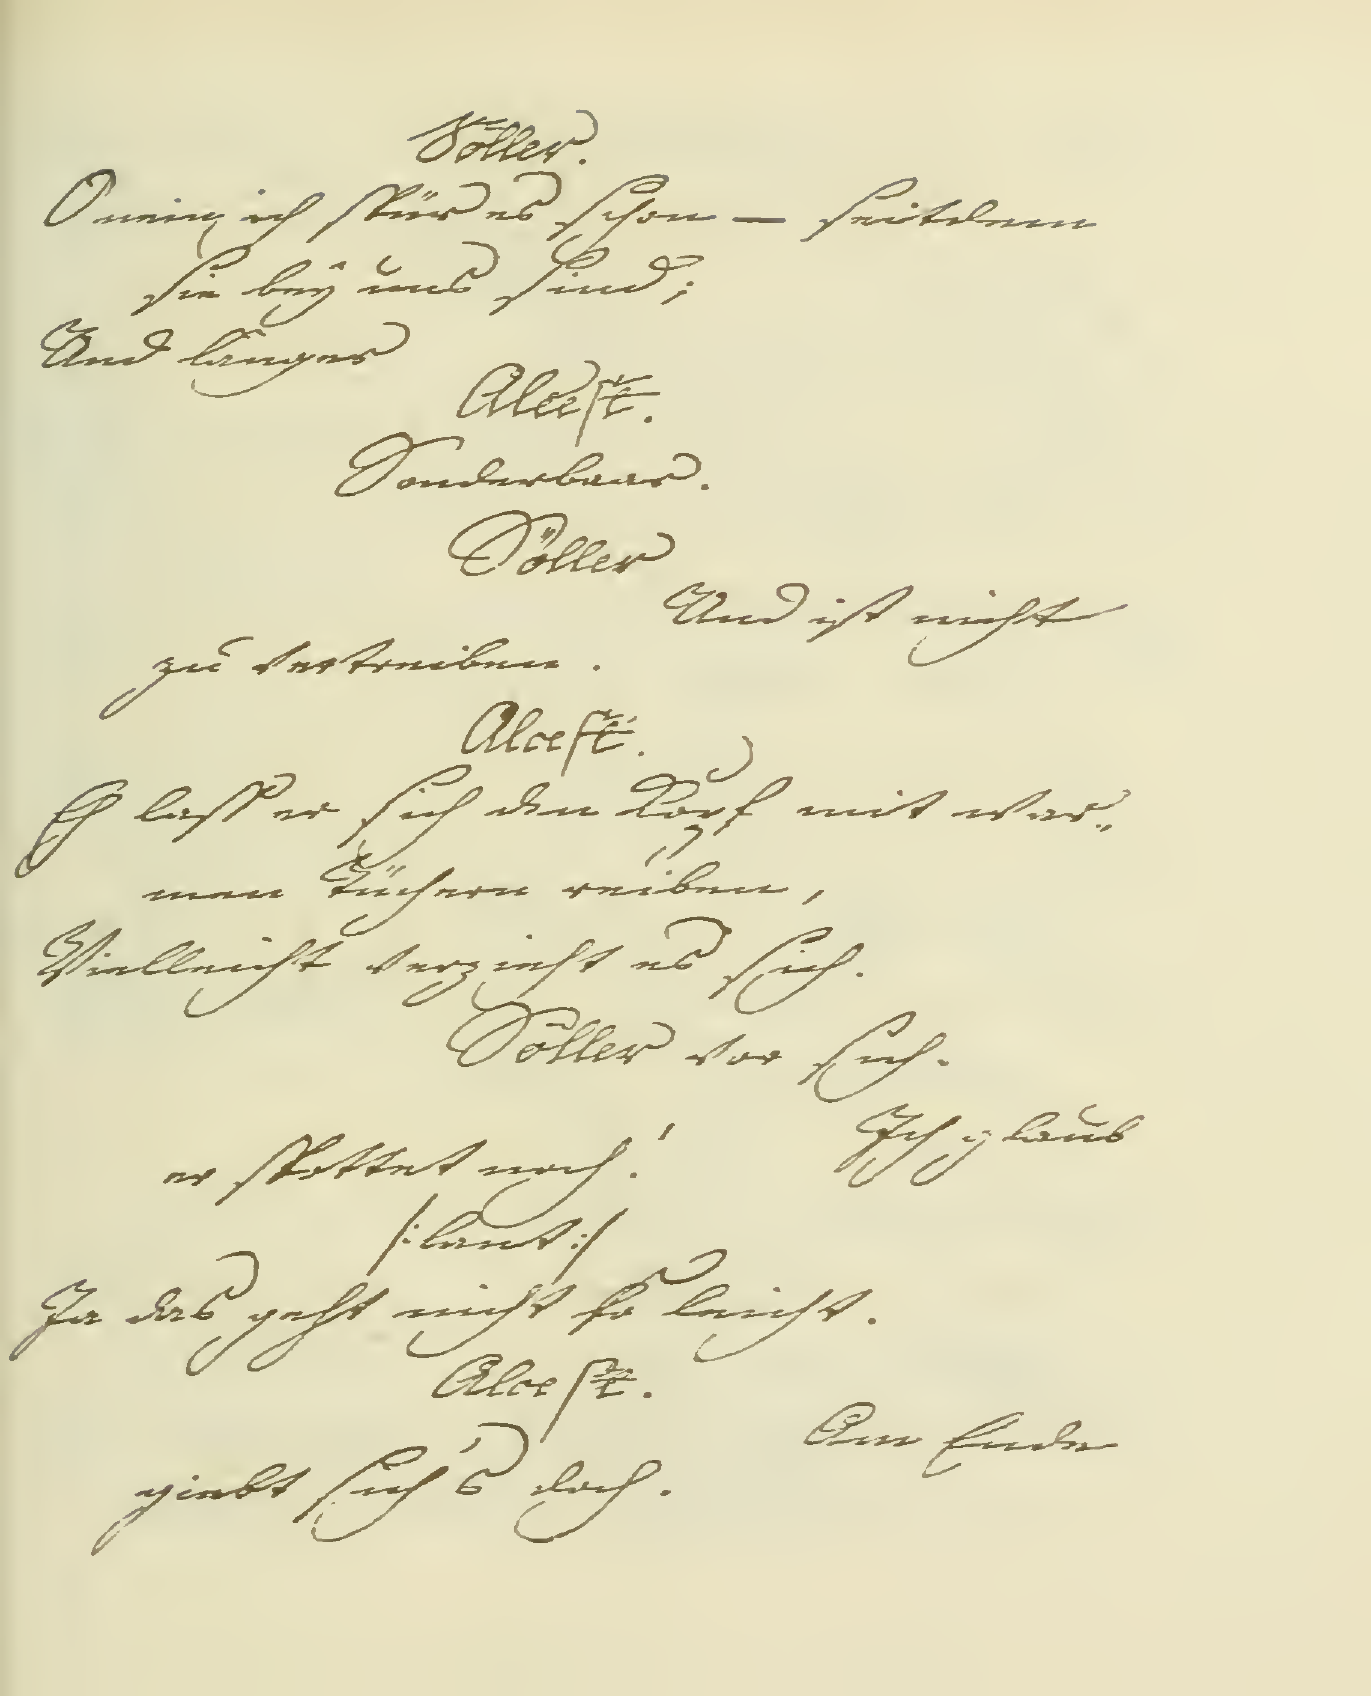 Söller.
O nein, ich spür es schon — seitdem
sie beÿ uns sind;
Und länger
Alcest.
Sonderbaar.
Söller
Und ist nicht
zu vertreiben.
Alcest.
Eh lass er sich den Kopf mit war„
men Tüchern reiben,
Vielleicht verzieht es sich.
Söller vor sich.
Ich glaub
er spottet noch!
/:laut:/
Ja das geht nicht so leicht.
Alcest.
Am Ende
giebt sich's doch.